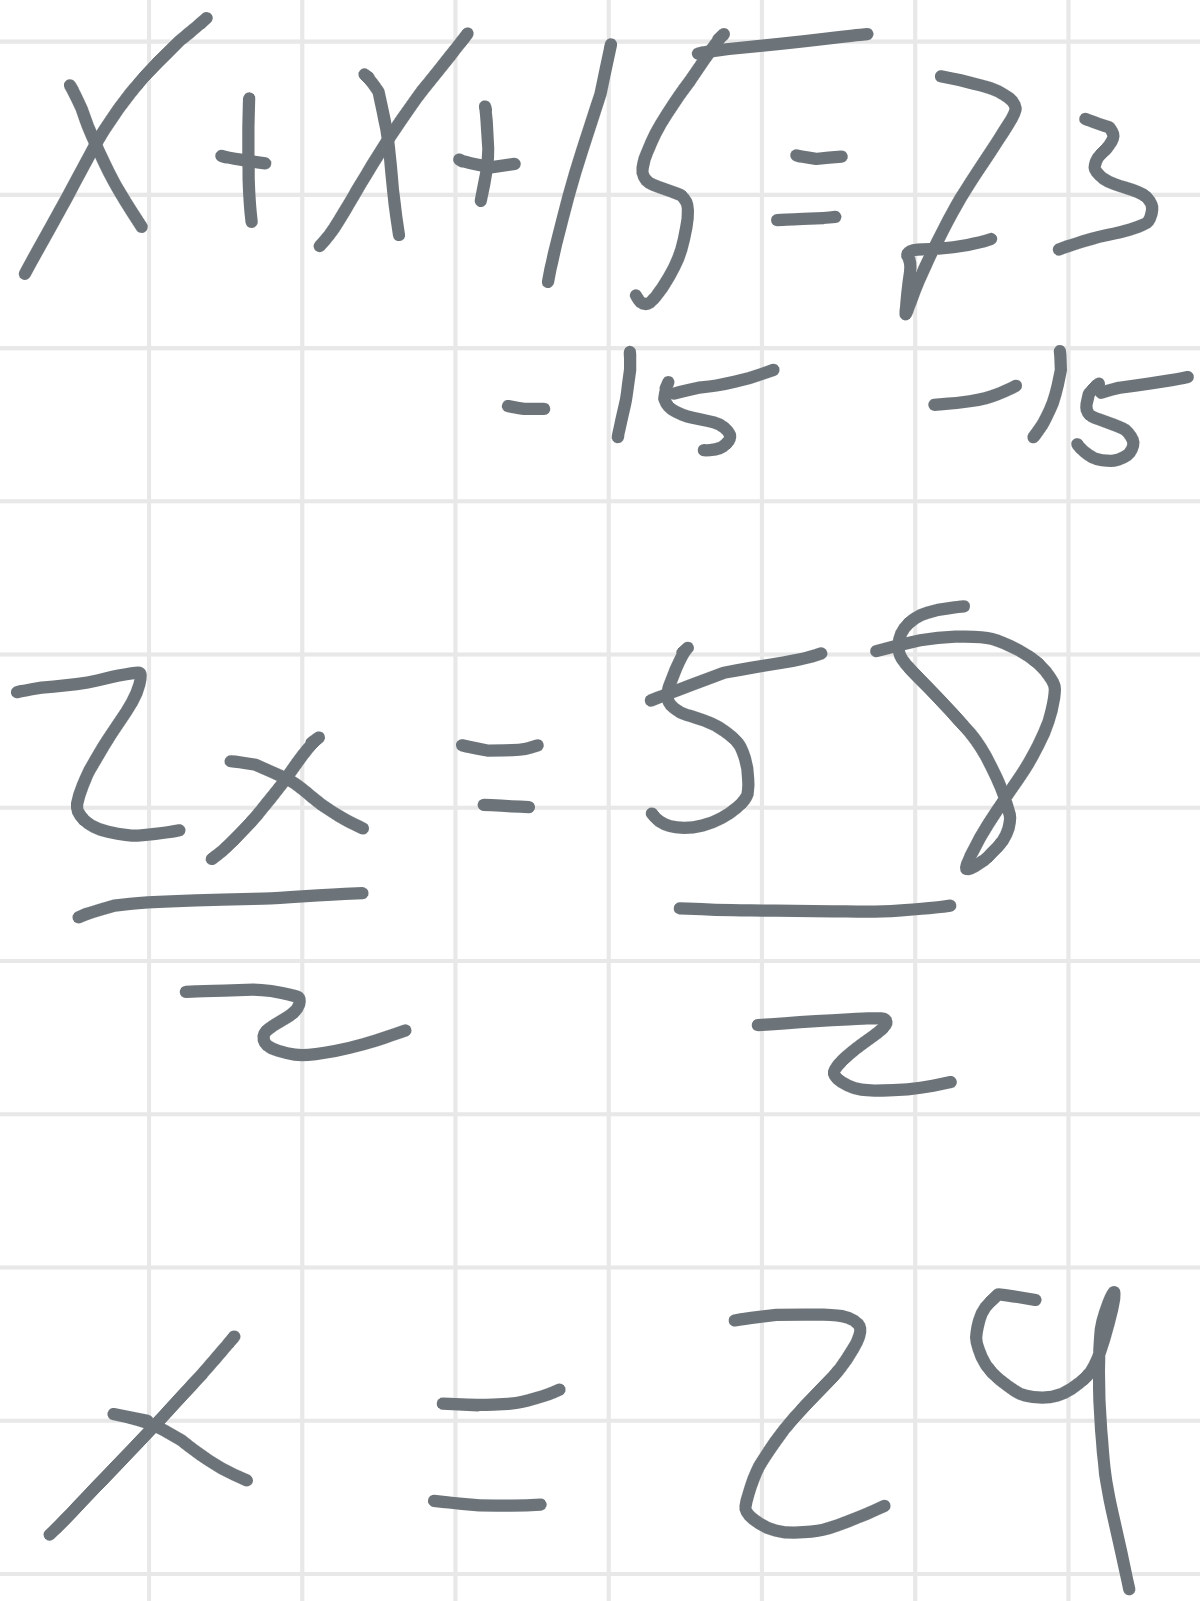 x + x + 15 = 73
- 15 - 15
2x = 58
2 2
x = 29